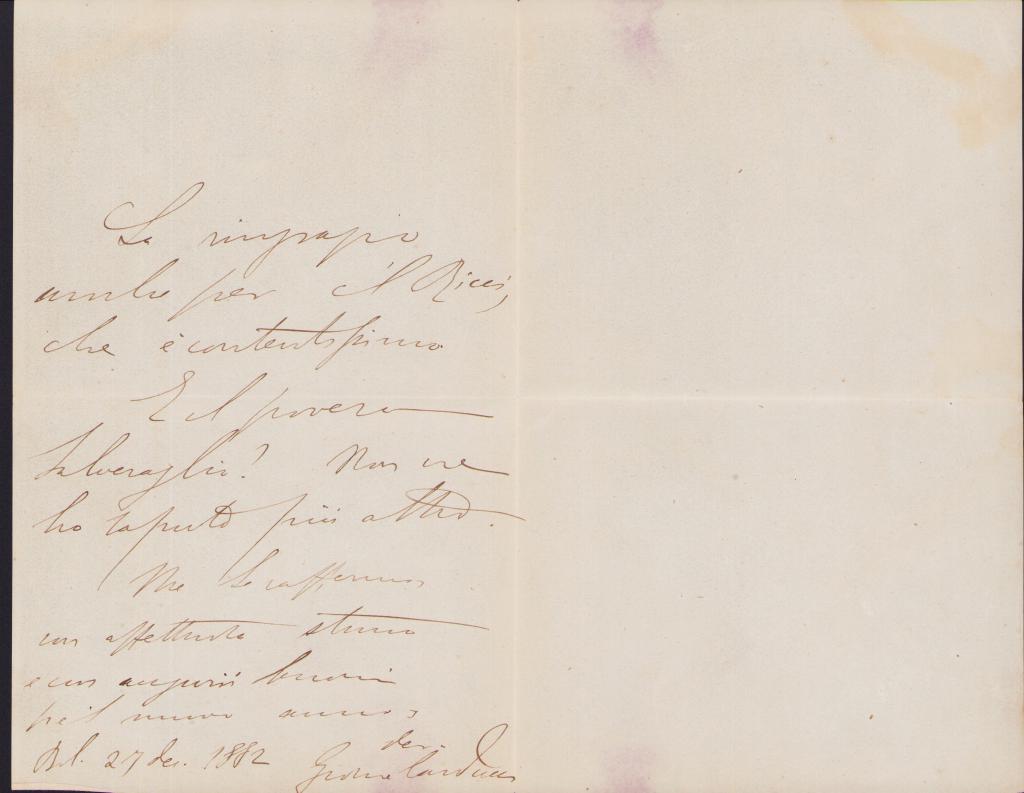 La ringrazio
anche per il Ricci,
che è contentissimo
E il povero
Salveraglio? Non ne
ho saputo più altro.
Me Le raffermo
con affettuosa stima
e con augurii buoni
pe 'l nuovo anno,
dev.
Bol. 27 dec. 1882 Giosue Carducci